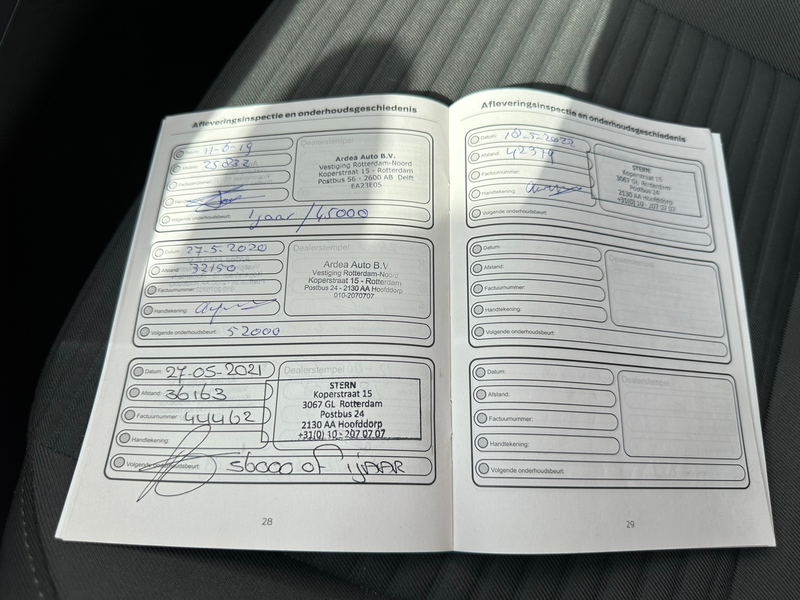 Afleveringsinspectie en onderhoudsgeschiedenis
Datum: 11-6-19
25882
Dealerstempel
Ardea Auto B.V.
Vestiging Rotterdam-Noord
Koperstraat 15 - Rotterdam
Postbus 56 - 2600 AB Delft
EA23E05
Volgende onderhoudsbeurt: 1 jaar / 45000
Datum: 27-5-2020
Afstand: 32150
Factuurnummer:
Handtekening:
Dealerstempel
Ardea Auto B.V.
Vestiging Rotterdam-Noord
Koperstraat 15 - Rotterdam
Postbus 24 - 2130 AA Hoofddorp
010-2070707
Volgende onderhoudsbeurt: 52000
Datum: 27-05-2021
Afstand: 36163
Factuurnummer: 44462
Handtekening:
Dealerstempel
STERN
Koperstraat 15
3067 GL Rotterdam
Postbus 24
2130 AA Hoofddorp
+31(0) 10 - 207 07 07
Volgende onderhoudsbeurt: 56000 of 1 JAAR
28
Afleveringsinspectie en onderhoudsgeschiedenis
Datum: 18-5-2022
Afstand: 42379
Factuurnummer:
Handtekening:
STERN
Koperstraat 15
3067 GL Rotterdam
Postbus 24
2130 AA Hoofddorp
+31(0) 10 - 207 07 07
Volgende onderhoudsbeurt:
Datum:
Afstand:
Factuurnummer:
Handtekening:
Volgende onderhoudsbeurt:
Dealerstempel
Datum:
Afstand:
Factuurnummer:
Handtekening:
Volgende onderhoudsbeurt:
Dealerstempel
29